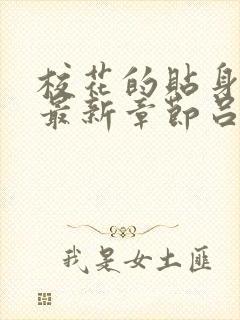 校花的贴身
最新章节吕
我是女土匪